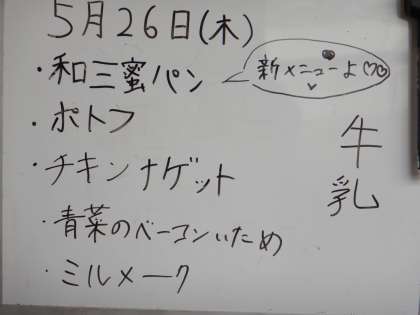 5月26日(木)
・和三蜜パン
新メニューよ♡♡
・ポトフ
・チキンナゲット
・青菜のベーコンいため
・ミルメーク
牛乳